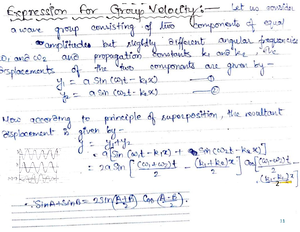 Expression For Group Velocity:— Let us consider
a wave group consisting of two components of equal
amplitudes but slightly different angular frequencies
ω₁ and ω₂ and propagation constants k₁ and k₂. The
displacements of the two components are given by—
y₁ = a sin (ω₁t - k₁x) — ①
y₂ = a sin (ω₂t - k₂x) — ②
Now according to principle of superposition, the resultant
displacement is given by—
y = y₁+y₂
= a[Sin (ω₁t - k₁x) + Sin (ω₂t - k₂x)]
= 2a Sin [(ω₁+ω₂)t/2 - (k₁+k₂)x/2] Cos [(ω₁-ω₂)t/2
- (k₁-k₂)x/2]
∵ SinA+SinB = 2Sin(A+B/2) Cos(A-B/2).